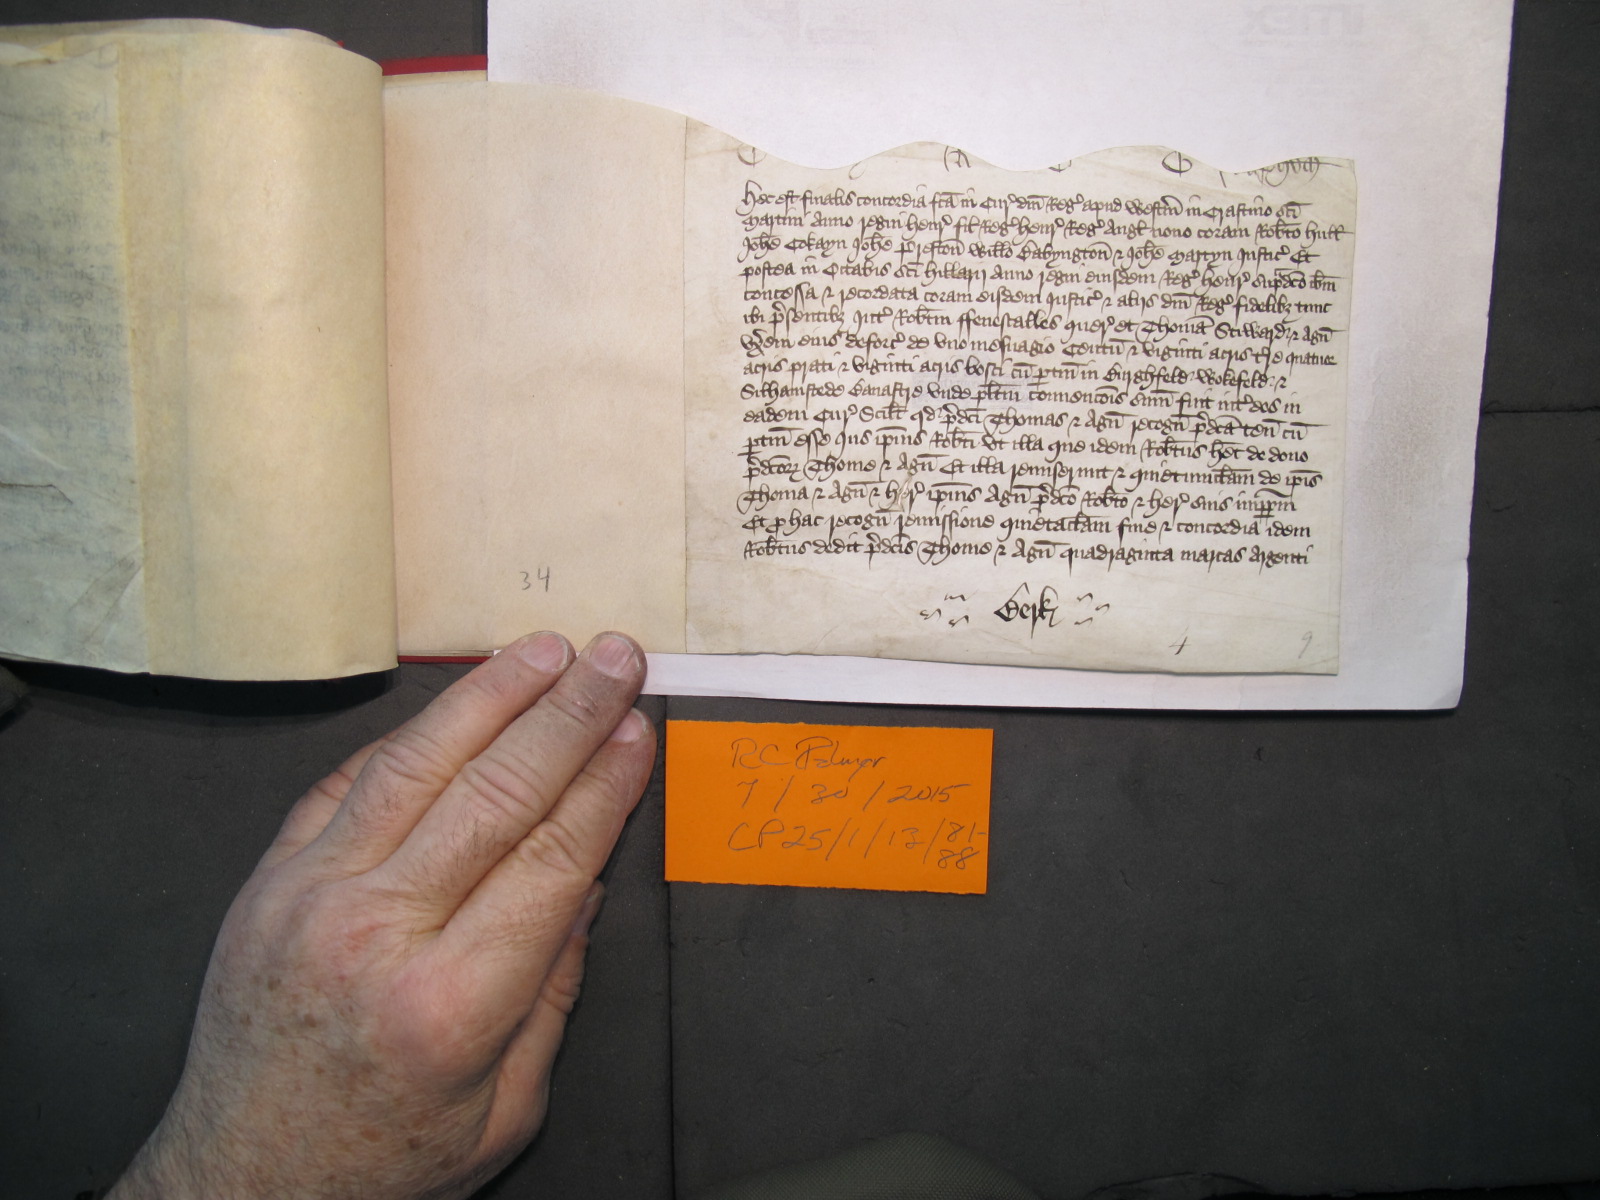 Hec est finalis concordia fc̄a in Cur' dn̄i Reg' apud Westm̄ in Crastino sc̄i
Martini Anno regni henr' fil' Reg' henr' Reg' Angl' nono coram Rob̄to Hull
Joh̄e Cokayn Joh̄e p̄reston̄ Will̄o Babyngton̄ & Joh̄e Martyn Justic' Et
postea in Octabis sc̄i hillarij Anno regni eiusdem Reg' henr' sup̄dc̄o ib̄m
concessa & recordata coram eisdem Justic' & alijs dn̄i Reg' fidelibȝ tunc
ibi p̄sentibȝ Int' Rob̄tm ffenestalles quer' et Thomā Stiward & Agn̄
vx̄em eius deforc' de vno mesuagio Centū & viginti acris t're quatuor
acris prati & viginti acris bosci cū ptin̄ in Burghfeld Wokefeld &
Silhamstede Banastre vnde pl̄itm conuenc̄ois sum̄ fuit int' eos in
eadem Cur' Scil̄t qd p̄dc̄i Thomas & Agn̄ recogn̄ p̄dc̄a ten̄ cū
ptin̄ esse Jus ip̄ius Rob̄ti vt illa que idem Rob̄tus h̄et de dono
p̄dc̄orꝝ Thome & Agn̄ Et illa remiserunt & quietumclam̄ de ip̄is
Thoma & Agn̄ & her' ip̄ius Agn̄ p̄dc̄o Rob̄to & her' suis imp̄p̄m
Et p hac recogn̄ remissione quietaclam̄ fine & concordia idem
Rob̄tus dedit p̄dc̄is Thome & Agn̄ quadraginta marcas argenti
Berk
34
4 9
RC Palmer
7/30/2015
CP 25/1/13/81-
88